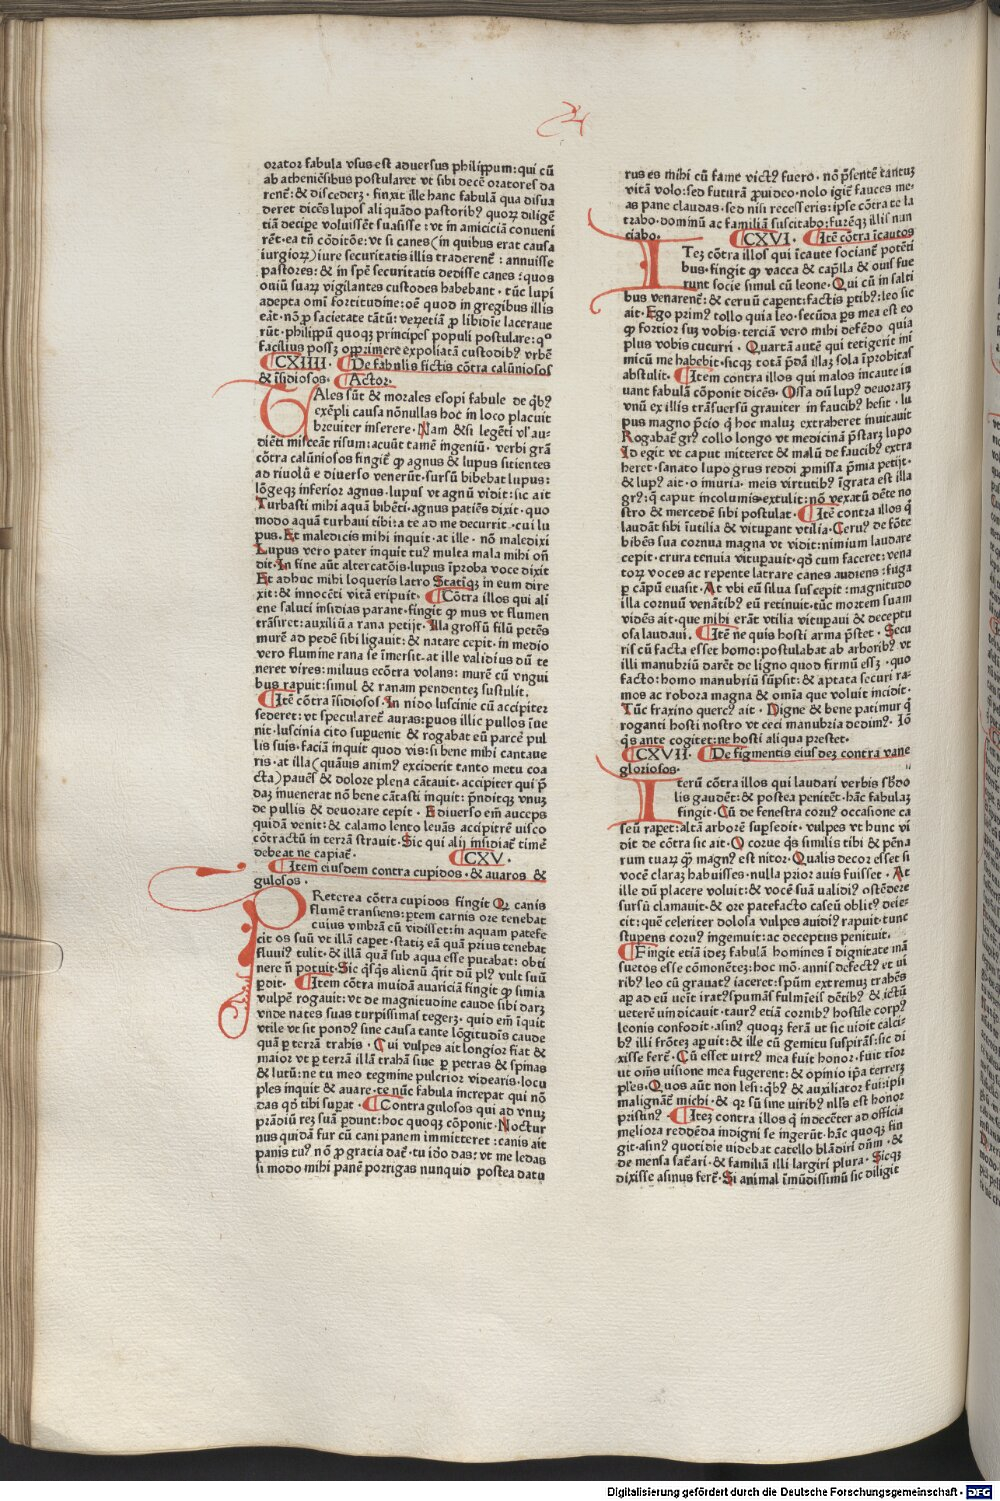 orator fabula vsus est aduersus philippum: qui cū
ab atheniēsibus postularet vt sibi decē oratores da
renť: & discederꝫ · finxit ille hanc fabulā qua disua
deret dicēs lupos ali quādo pastoribꝰ quorꝫ diligē
tiā decipe voluissēt suasisse : vt in amiciciā conueni
rēt · ea tñ cōditōe: vt si canes (in quibus erat causa
iurgiorꝫ) iure securitatis illis traderenť : annuisse
pastores: & in spē securitatis dedisse canes : quos
oniū suarꝫ vigilantes custodes habebant · tūc lupi
adepta omī fortitudine: oē quod in gregibus illis
eāt · nō ꝓ sacietate tātū: veꝝetiā ꝓ libidīe laceraue
rūt · philippū quoqꝫ principes populi postulare: qͦ
facilius possꝫ opprimere expoliatā custodibꝰ vrbē
CXIIII · De fabulis fictis cōtra calūniosos
& īsidiosos · Actor ·
TAles sūt & morales esopi fabule de qͥbꝰ
exēpli causa nōnullas hoc in loco placuit
breuiter inserere · Nam &si legēti vl' au-
diēti misceāt risum: acuūt tamē ingeniū · verbi grā
cōtra calūniosos fingit ꝙ agnus & lupus sitientes
ad riuolū e diuerso venerūt · sursū bibebat lupus:
lōgeqꝫ inferior agnus · lupus vt agnū vidit: sic ait
Turbasti mihi aquā bibēti · agnus patiēs dixit · quo
modo aquā turbaui tibi: a te ad me decurrit · cui lu
pus · Et maledicis mihi inquit · at ille · nō maledixi
Lupus vero pater inquit tuꝰ multa mala mihi oñ
dit · In fine aūt altercatōis · lupus īproba voce dixit
Et adhuc mihi loqueris latro Statiqꝫ in eum dire
xit: & innocēti vitā eripuit · Cōtra illos qui ali
ene saluti insidias parant · fingit ꝙ mus vt flumen
trāsiret: auxiliū a rana petijt · Illa grossū filū petēs
murē ad pedē sibi ligauit: & natare cepit · in medio
vero flumine rana se īmersit · at ille validius dū te
neret vires: miluus ecōtra volans: murē cū vngui
bus rapuit: simul & ranam pendentē sustulit.
Itē cōtra īsidiosos · In nido luscinie cū accipiter
sederet: vt specularet auras: puos illic pullos īue
nit · luscinia cito supuenit & rogabat eū parcē pul
lis suis · faciā inquit quod vis: si bene mihi cantaue
ris · at illa (quāuis animꝰ exciderit tanto metu coa
cta) pauēs & dolore plena cātauit · accipiter qui p̄
daꝫ inuenerat nō bene cātasti inquit: p̄nditqꝫ vnuꝫ
de pullis & deuorare cepit · E diuerso em̄ auceps
quidā venit: & calamo lento leuās accipitrē uisco
cōtractū in terrā strauit · Sic qui alijs insidiať timē
debeat ne capiať · CXV ·
Item eiusdem contra cupidos · & auaros &
gulosos ·
PReterea cōtra cupidos fingit Q canis
flumē transiens: ptem carnis ore tenebat
cuius vmbrā cū vidisset: in aquam patefe
cit os suū vt illā capet · statiꝫ eā quā prius tenebat
fluuiꝰ tulit · & illā quā sub aqua esse putabat: obti
nere ñ potuit · Sic qͥsqͥs alienū q̄rit dū plꝰ vult suū
pdit · Item cōtra inuidā auariciā fingit ꝙ simia
vulpē rogauit: vt de magnitudine caude sibi darꝫ
vnde nates suas turpissimas tegerꝫ · quid em̄ īquit
vtile vt sit pondꝰ sine causa tante lōgitudīs caude
quā p terrā trahis · Cui vulpes ait longior fiat &
maior vt p terrā illā trahā siue p petras & spinas
& lutū: ne tu meo tegmine pulcrior videaris · locu
ples inquit & auare · te nūc fabula increpat qui nō
das qd̄ tibi supat · Contra gulosos qui ad vnuꝫ
prādiū reꝫ suā pdunt: hoc quoqꝫ cōponit · Noctur
nus quidā fur cū cani panem immitteret : canis ait
panis tuꝰ nō ꝓ gratia dať · tu iō o das: vt me ledas
si modo mihi panē porrigas nunquid postea datu
rus es mihi cū fame victꝰ fuero · nō p̄sentē tantuꝫ
vitā volo: sed futurā ꝓuideo · nolo igiť fauces me-
as pane claudas · sed nisi recesseris: ipse cōtra te la
trabo · dominū ac familiā suscitabo: furēqꝫ illis nun
ciabo · CXVI · Itē cōtra īcautos
ITeꝫ cōtra illos qui īcaute sociant potēti
bus · fingit ꝙ vacca & capella & ouis fue
runt socie simul cū leone · Qui cū in salti
bus venarenť: & ceruū capent: factis ptibꝰ: leo sic
ait · Ego primꝰ tollo quia leo · secūda ps mea est eo
ꝙ fortior suꝫ vobis · terciā vero mihi defēdo quia
plus vobis cucurri · Quartā autē qui tetigerit ini
micū me habebit · sicqꝫ totā p̄dā illaꝫ sola īprobitas
abstulit · Item contra illos qui malos incaute iu
uant fabulā cōponit dicēs · Ossa dū lupꝰ deuorarꝫ
vnū ex illis trāsuersū grauiter in faucibꝰ hesit · lu
pus magno p̄cio qͥ hoc maluꝫ extraheret inuitauit
Rogabať grꝰ collo longo vt medicinā p̄starꝫ lupo
Id egit vt caput mitteret & malū de faucibꝰ extra
heret · sanato lupo grus reddi ꝓmissa p̄mia petijt ·
& lupꝰ ait · o iniuria · meis virtutibꝰ īgrata est illa
grꝰ: q̄ caput incolumis extulit: nō vexatū dēte no
stro & mercedē sibi postulat · Itē contra illos qͥ
laudāt sibi īutilia & vitupant vtilia · Ceruꝰ de fōte
bibēs sua cornua magna vt vidit: nimium laudare
cepit · crura tenuia vitupauit · qd̄ cum faceret: vena
torꝫ voces ac repente latrare canes audiens: fuga
p cāpū euasit · At vbi eū silua suscepit: magnitudo
illa cornuū venātibꝰ eū retinuit · tūc mortem suam
vidēs ait · que mihi erāt vtilia vitupaui & deceptu
osa laudaui. Itē ne quis hosti arma p̄stet · Secu
ris cū facta esset homo: postulabat ab arboribꝰ vt
illi manubriū darēt de ligno quod firmū essꝫ · quo
facto: homo manubriū sūpsit: & aptata securi ra-
mos ac robora magna & omīa que voluit incidit ·
Tūc fraxino quercꝰ ait · Digne & bene patimur qͥ
roganti hosti nostro vt ceci manubria dedimꝰ · Iō
qͥs ante cogitet: ne hosti aliqua prestet ·
CXVII · De figmentis eiusdeꝫ contra vane
gloriosos ·
ITerū cōtra illos qui laudari verbis sbdo
lis gaudēt: & postea penitēt · hāc fabulaꝫ
fingit · Cū de fenestra coruꝰ occasione ca
seū rapet: altā arborē supsedit · vulpes vt hunc vi
dit de cōtra sic ait · O corue qͥs similis tibi & pēna
rum tuarꝫ ꝙ magnꝰ est nitor · Qualis decor esset si
vocē claraꝫ habuisses · nulla prior auis fuisset · At
ille dū placere voluit: & vocē suā validiꝰ ostēdere
sursū clamauit · & ore patefacto caseū oblitꝰ deie-
cit: quē celeriter dolosa vulpes auidiꝰ rapuit · tunc
stupens coruꝰ ingemuit: ac deceptus penituit.
Fingit etiā ideꝫ fabulā homines ī dignitate mā
suetos esse cōmonētꝫ: hoc mō · annis defectꝰ et ui
ribꝰ leo cū grauatꝰ iaceret: spūm extremuꝫ trahēs
apr ad eū ueīt iratꝰ spumās fulmīeis dētibꝰ & ictū
ueterē uindicauit · taurꝰ etiā cornibꝰ hostile corpꝰ
leonis confodit · asinꝰ quoqꝫ ferā ut sic uidit calci-
bꝰ illi frōteꝫ apuit: & ille cū gemitu suspirās: sic di
xisse ferť · Cū esset uirtꝰ mea fuit honor · fuit tior
ut om̄s visione mea fugerent: & opinio ip̄a terrerꝫ
ples · Quos aūt non lesi: qͥbꝰ & auxiliator fui: ipsi
malignāť michi · & qꝛ sū sine uiribꝰ nlls̄ est honor
pristinꝰ · Iteꝫ contra illos qͥ indecēter ad officia
meliora reddēda indigni se ingerūt · hāc quoqꝫ fin
git · asinꝰ quotidie uidebat catello blādiri dñm · &
de mensa satiari · & familiā illi largiri plura · Sicqꝫ
dixisse asinus ferť · Si animal īmūdissimū sic diligit
Digitalisierung gefördert durch die Deutsche Forschungsgemeinschaft - DFG